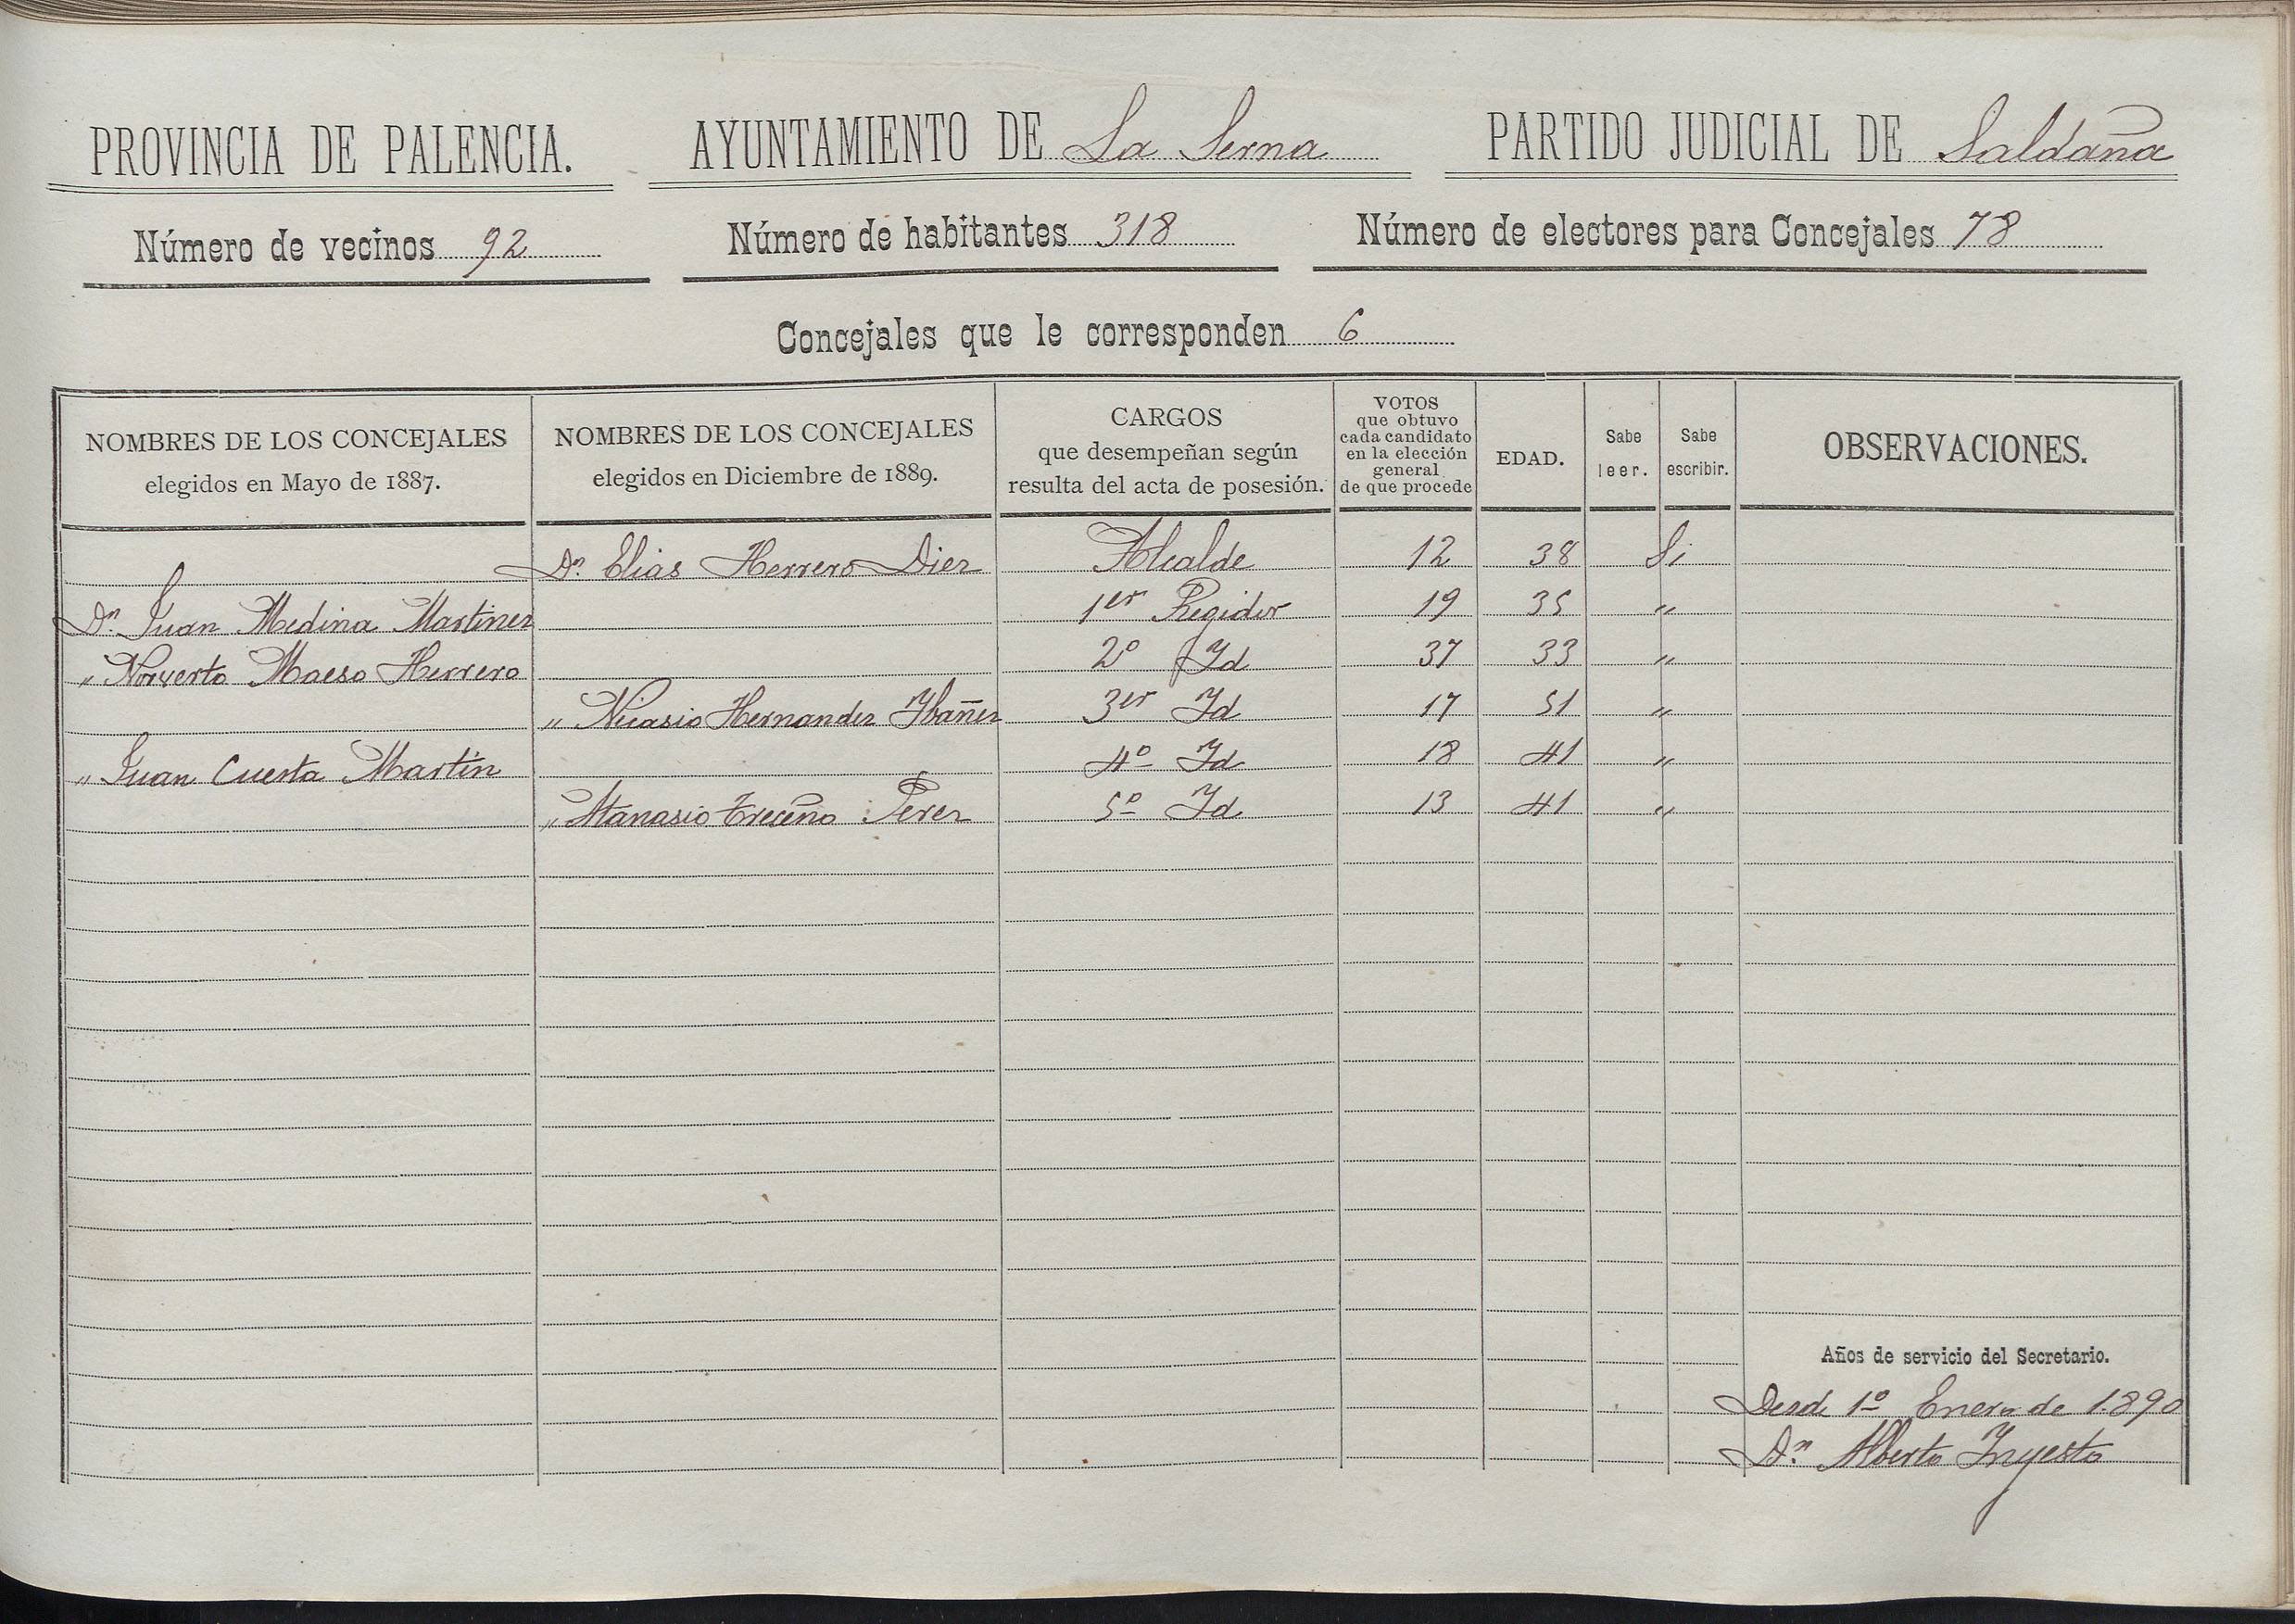 PROVINCIA DE PALENCIA. AYUNTAMIENTO DE La Serna PARTIDO JUDICIAL DE Saldaña
Número de vecinos 92 Número de habitantes 318 Número de electores para Concejales 78
Concejales que le corresponden 6
NOMBRES DE LOS CONCEJALES
elegidos en Mayo de 1887.
NOMBRES DE LOS CONCEJALES
elegidos en Diciembre de 1889.
CARGOS
que desempeñan según
resulta del acta de posesión.
VOTOS
que obtuvo
cada candidato
en la elección
general
de que procede
EDAD.
Sabe
leer.
Sabe
escribir.
OBSERVACIONES.
Dn. Elias Herrero Diez Alcalde 12 38 Si
Dn. Juan Medina Martinez 1er Regidor 19 35 "
" Norverto Maeso Herrero 2º Id 37 33 "
" Nicasio Hernandez Ybañez 3er Id 17 51 "
" Juan Cuesta Martin 4º Id 18 41 "
" Atanasio Treceño Perez 5º Id 13 41 "
Años de servicio del Secretario.
Desde 1º Enero de 1.890
Dn. Alberto Inyesto